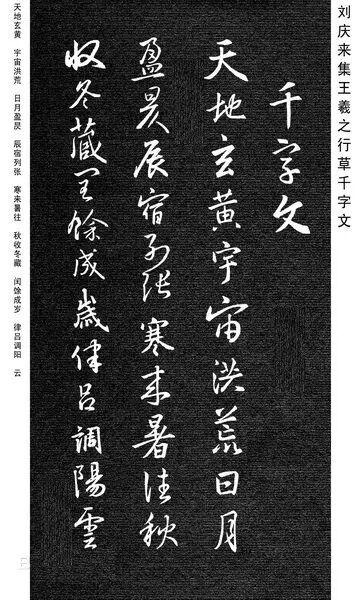 刘庆来集王羲之行草千字文
千字文
天地玄黄宇宙洪荒日月
盈昃辰宿列张寒来暑往秋
收冬藏闰馀成岁律吕調陽雲
天地玄黄 宇宙洪荒 日月盈昃 辰宿列张 寒来暑往 秋收冬藏 闰馀成岁 律吕调阳 云